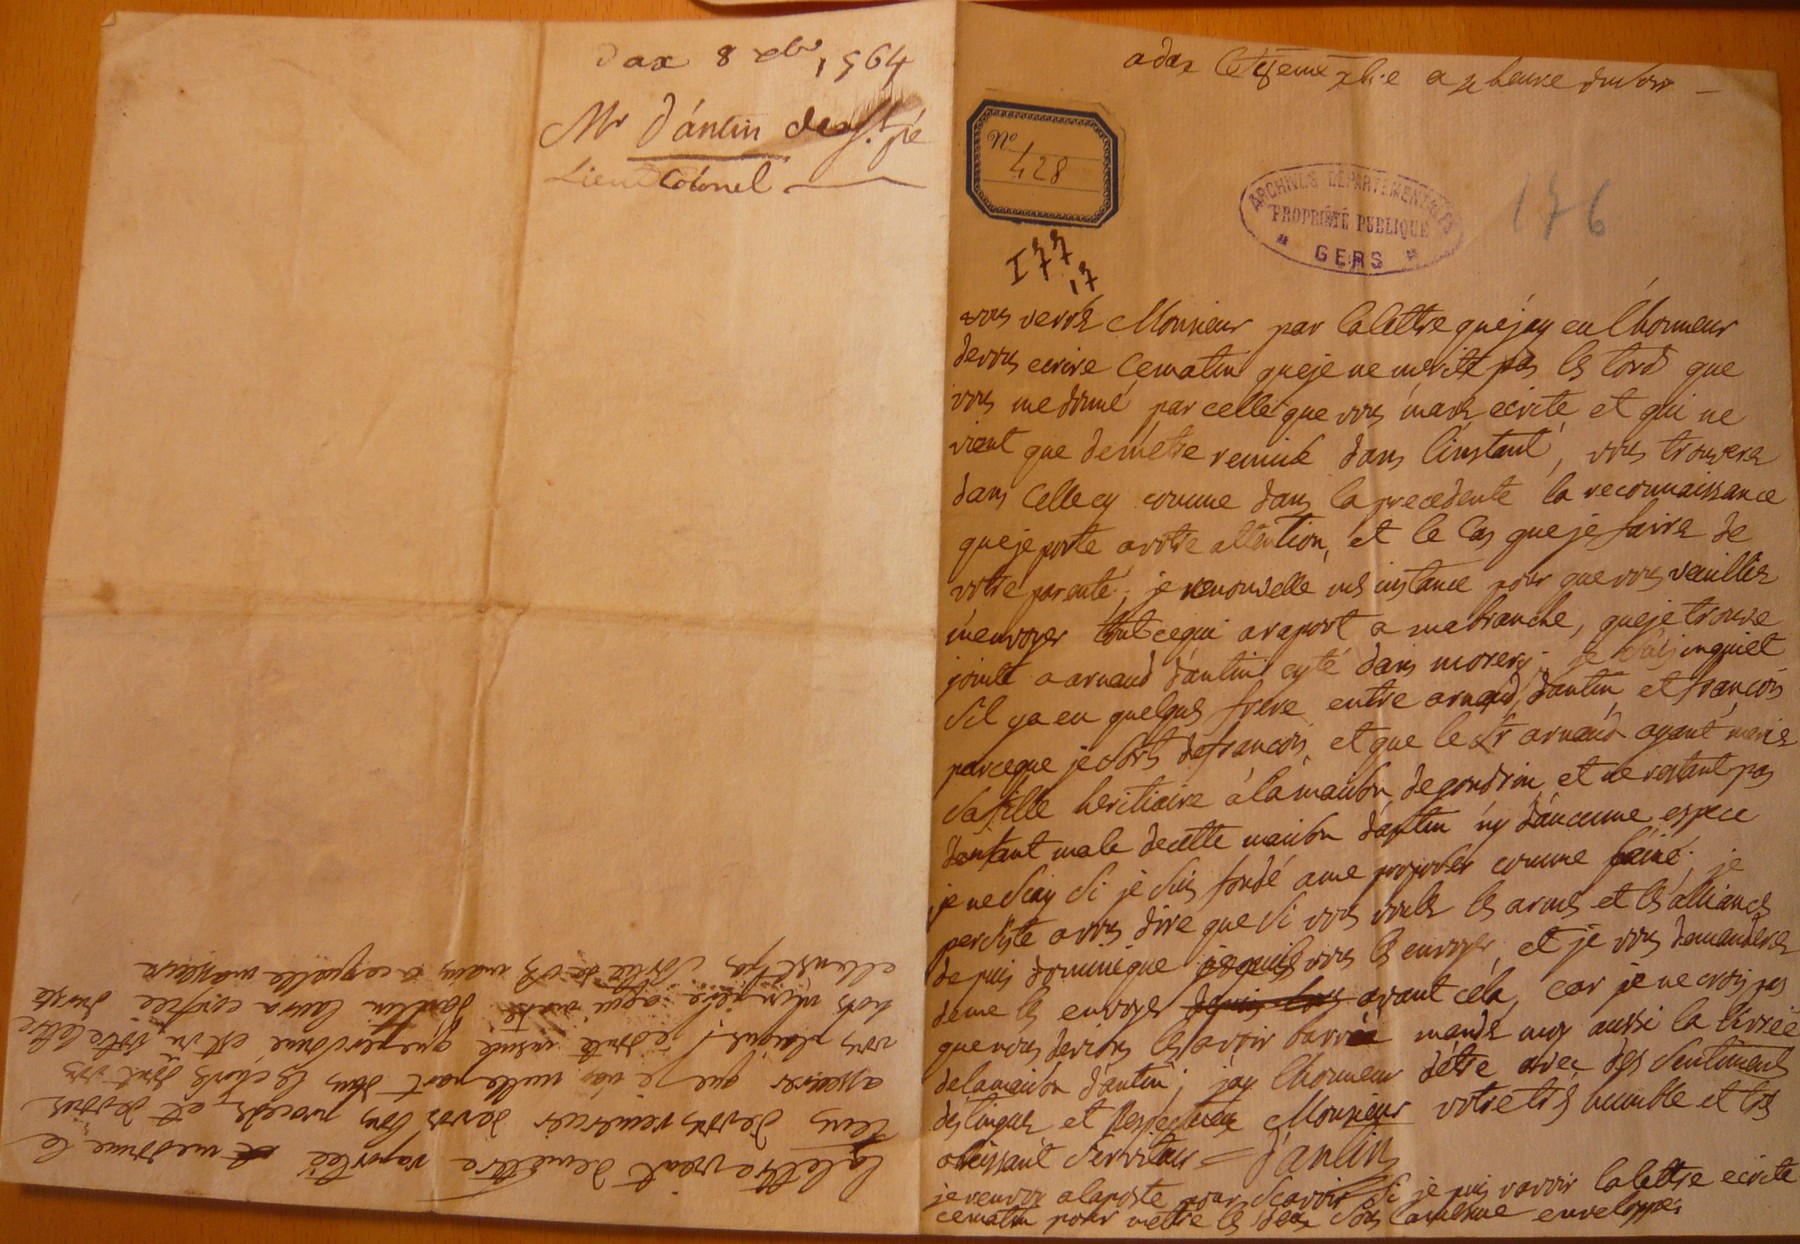 Dax 8 xbre 1764
Mr D'antin de St pé
Lieut Colonel
a dax ce 8eme xbre a heure du soir
No
428
ARCHIVES DEPARTEMENTALES
PROPRIÉTÉ PUBLIQUE
GERS
176
I 77
17
vous verrés Monsieur par la lettre que jay eu l'honneur
de vous ecrire ce matin que je ne merite pas les tord que
vous me donné par celle que vous mavés ecrite et qui ne
vient que de metre remise dans l'instant, vous trouverez
dans celle cy comme dans la precedente la reconnaissance
que je porte a votre attention, et le cas que je fairez de
votre parenté; je renouvelle mes instance pour que vous veuilliez
m'envoyer tout ce qui a raport a ma branche, que je trouve
joint a arnaud d'antin cyté dans morery; je suis inquiet
sil y a eu quelques frere entre arnaud dantin et françois
parceque je sorts de francois, et que le sr arnaud ayant marié
sa fille heritiaire à la maison de gondrin et ne restant pas
denfant male de cette maison dantin ny d'aucune espece
je ne say si je suis fondé a me proposer comme l'ainé. je
persiste a vous dire que si vous voulez les armes et les alliances
depuis dominique je puis vous les envoyer, et je vous demanderez
de me les envoyer avant céla, car je ne crois pas
que nous devions les avoir barrée mandé moy aussi la livrée
de la maison d'antin; jay lhonneur detre avec des sentiments
destingues et respectueux Monsieur votre tres humble et tres
obeissant serviteur = D'antin
je renvoy a la poste pour scavoir si je puis ravoir la lettre ecrite
ce matin pour mettre les deux sous la mesme enveloppe
la lettre vient de mettre raportée et me donne le
tems de vous remercier de vos bons procedes, et de vous
assurer que je nay nulle part dans les choses dont vous
vous plaigné, ensuite que personne est vu votre lettre
hors mon pere a qui dantin